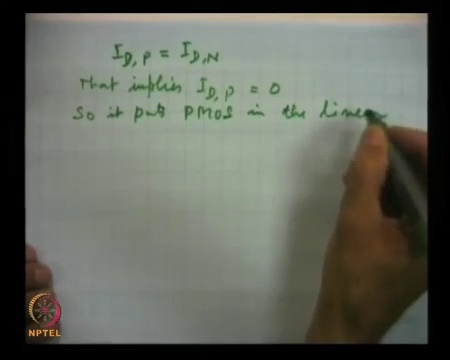 I_D,P = I_D,N
That implies I_D,P = 0
So it puts PMOS in the linear
NPTEL